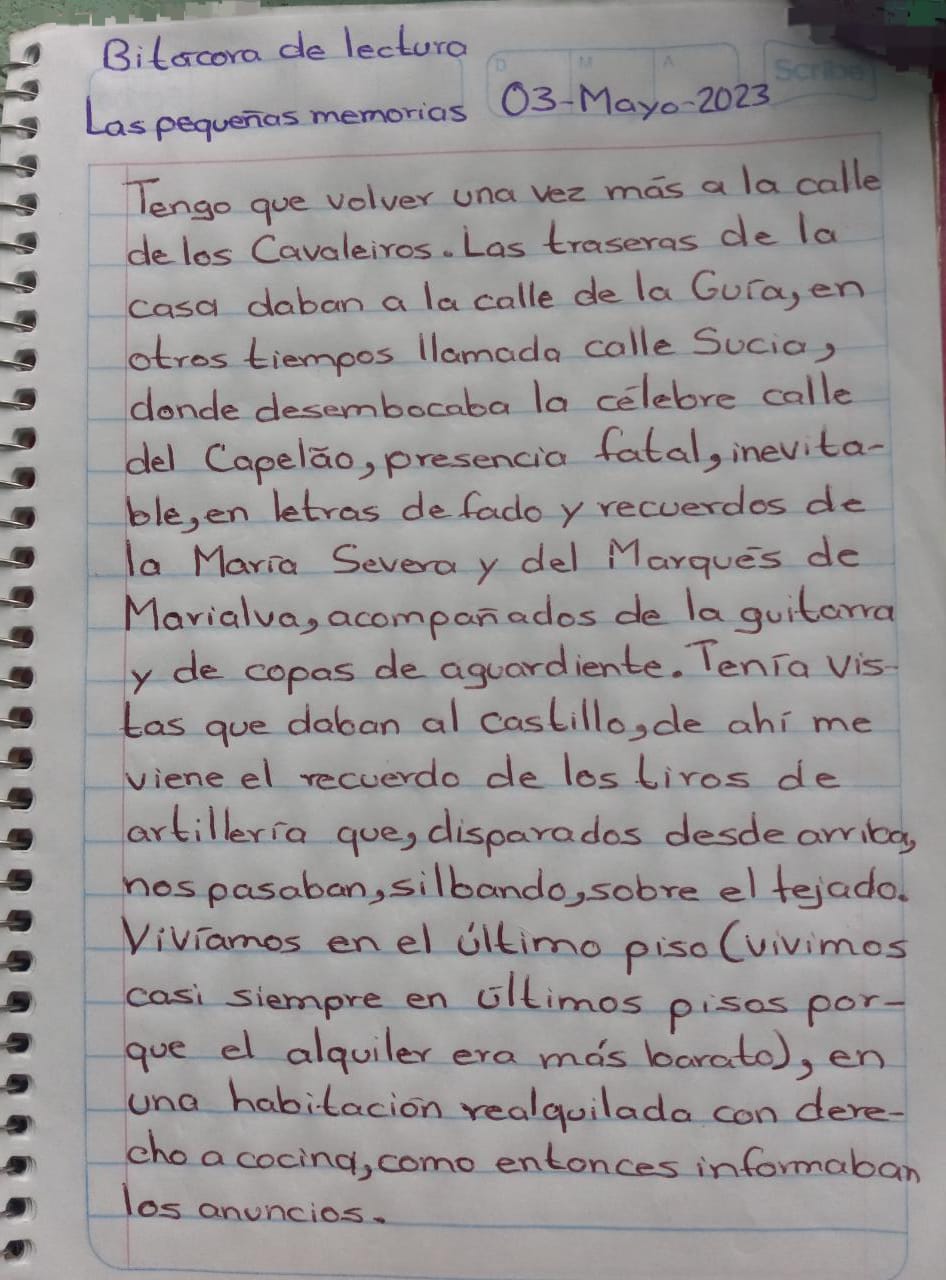 Bitácora de lectura
D M A Scribe
Las pequeñas memorias 03-Mayo-2023
Tengo que volver una vez más a la calle
de los Cavaleiros. Las traseras de la
casa daban a la calle de la Guía, en
otros tiempos llamada calle Sucia,
donde desembocaba la célebre calle
del Capelão, presencia fatal, inevita-
ble, en letras de fado y recuerdos de
la María Severa y del Marqués de
Marialva, acompañados de la guitarra
y de copas de aguardiente. Tenía vis-
tas que daban al castillo, de ahí me
viene el recuerdo de los tiros de
artillería que, disparados desde arriba,
nos pasaban, silbando, sobre el tejado.
Vivíamos en el último piso (vivimos
casi siempre en últimos pisos por-
que el alquiler era más barato), en
una habitación realquilada con dere-
cho a cocina, como entonces informaban
los anuncios.